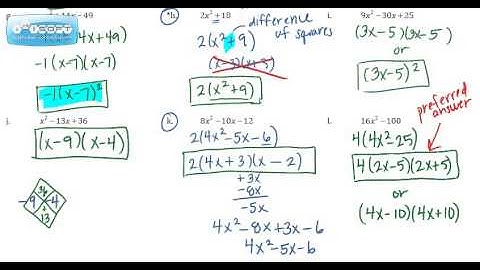 -1(x-7)(x-7)
-1(x-7)²
*h. 2x² + 18
difference of squares
2(x²+9)
(x-3)(x+3)
2(x²+9)
i. 9x² - 30x + 25
(3x-5)(3x-5)
or
(3x-5)²
j. x² - 13x + 36
(x-9)(x-4)
36
-9 -4
+
13
k. 8x² - 10x - 12
2(4x²-5x-6)
2(4x+3)(x-2)
+3x
-8x
-5x
4x²-8x+3x-6
4x²-5x-6
l. 16x² - 100
preferred answer
4(4x²-25)
4(2x-5)(2x+5)
or
(4x-10)(4x+10)